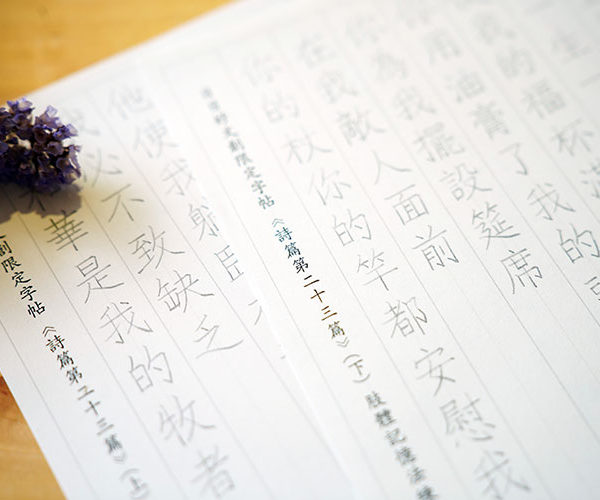 生一
我的福杯滿
你用油膏了我的
你為我擺設筵席
在我敵人面前
你的杖你的竿都安慰我
的文創限定字帖《詩篇第二十三篇》(下) 肢體記憶法
他使我躺臥
我必不致缺乏
和華是我的牧者
創限定字帖《詩篇第二十三篇》(上